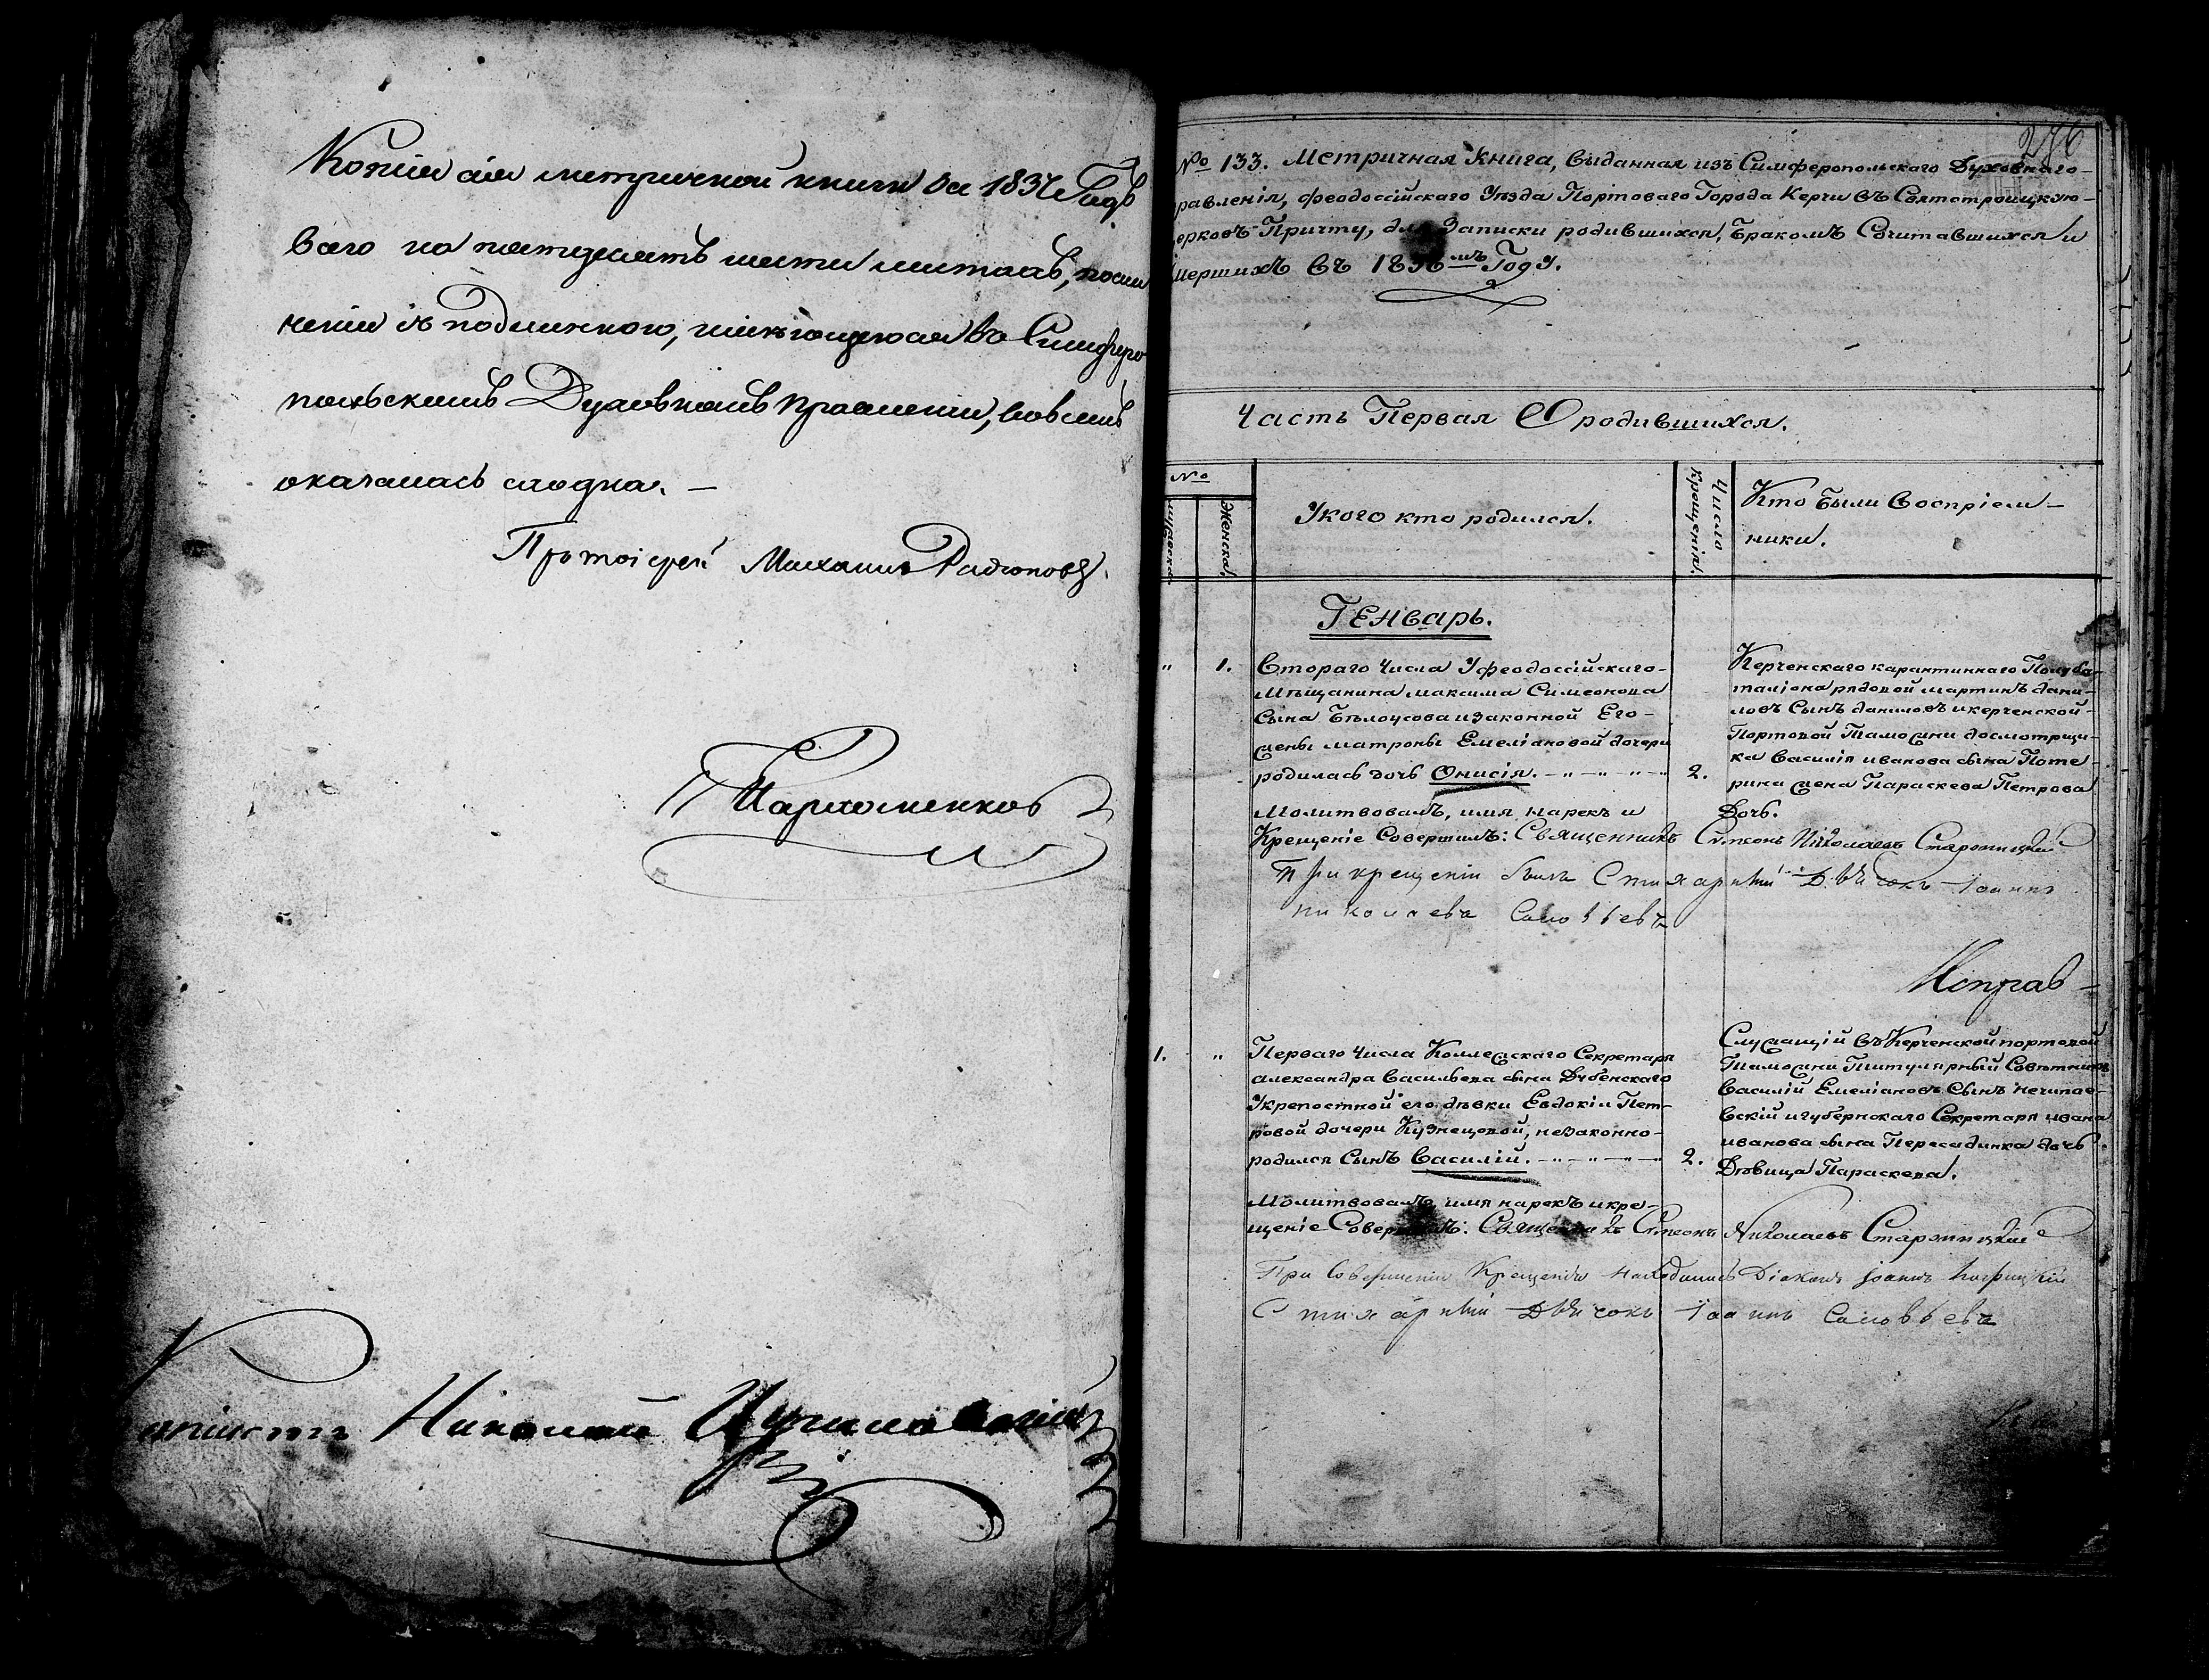 Копія сія метрической книги за 1837 Годъ
всего на пятидесять шести листахъ, по сли
ченіи съ подлинною, имѣющеюся въ Симферо
польскомъ Духовномъ Правленіи, во всемъ
оказалась сходна. —
Протоіерей Михаилъ Родіоновъ.
Пархоменков
Николай
276
№ 133. Метричная Книга, выданная изъ Симферопольского Духовнаго-
равленія, Феодоссійскаго Уѣзда Портоваго Города Керчи въ Святотроицкую-
ерковъ Причту, для Записки родившихся, Бракомъ Сочитавшихся и
мершихъ въ 1838мъ Году.
Часть Первая О родившихся.
№
Мужеска.
Женска.
У кого кто родился.
Число Крещенія.
Кто были Воспріем-
ники.
Генварь.
" 1. Втораго Числа У феодоссійскаго-
Мѣщанина Максима Симеонова
Сына Бѣлоусова и законной Его-
жены Матроны Емеліановой дочери
родилась дочь Онисія. 2.
Молитвовалъ, имя нарекъ и
Керченскаго карантиннаго Полуба-
таліона рядовой Мартинъ Дани-
ловъ Сынъ Даниловъ и керченской-
Портовой Таможни досмотрщи-
ка Василія Иванова сына Поте-
рина жена Параскева Петрова
Дочь.
Крещеніе Совершилъ: Священникъ Симеонъ Николаевъ Старопицкій
При крещеніи былъ Стихарный Дьячокъ Іоаннъ
Николаевъ Соловьевъ
Исправ-
1. " Перваго Числа Коллежскаго Секретаря
Александра Васильева сына Дубенскаго
У крепостной его дѣвки Евдокіи Пет-
ровой дочери Кузнецовой, незаконно-
родился Сынъ Василій. 2.
Молитвовалъ имя нарекъ и кре-
Служащій въ Керченской портовой
Таможни Титулярный Совѣтникъ
Василій Емеліановъ Сынъ Нечипае-
вскій и губернскаго Секретаря Ивана
Иванова сына Пересадинка дочь
Дѣвица Параскева.
щеніе Совершилъ: Священникъ Симеонъ Николаевъ Старопицкій
При Совершеніи Крещенія находились Діаконъ Іоаннъ
Стихарный Дьячокъ Іоаннъ Соловьевъ